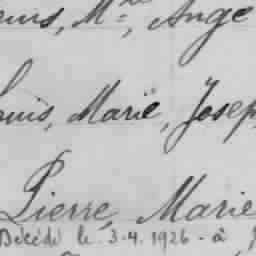 Mie, Ange
Louis, Marie, Josep
Pierre, Marie
Décédé le 3-4-1926 - à